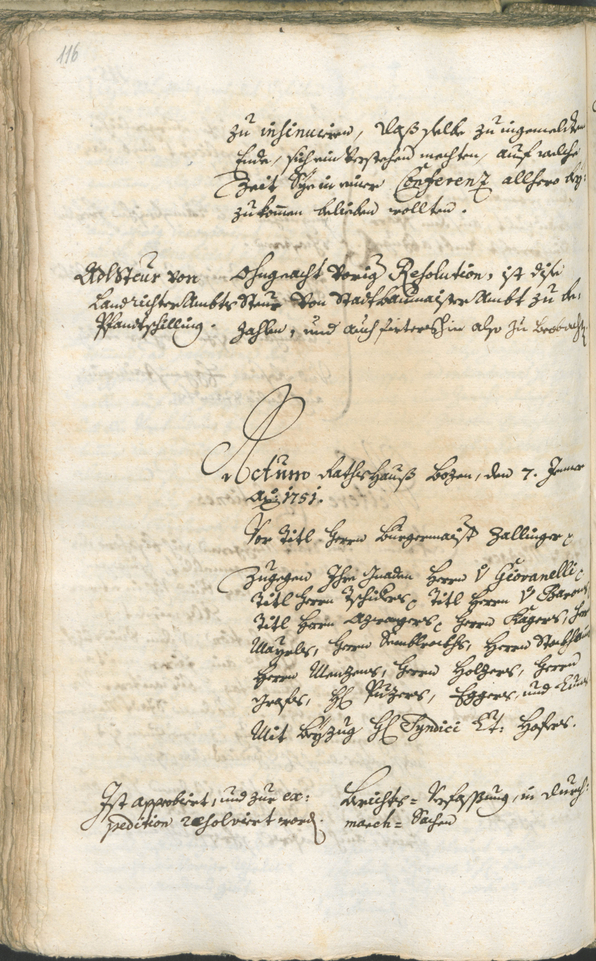 116
zu insinuiren, daß selbe zu ingemelten
Ende, sich ein verstehen mechten, auf welche
Zeit Sye in einer Conferenz allhero bey-
zukommen belieben wollten.
Adlsteur von
Landrichter Ambts
Pfandtschilling.
Ohngeacht vorig Resolution, ist dise
Steur von Stadtbaumaister Ambt zu be-
zahlen, und auch firtershin also zu beobacht
Actum Rathshauß Bozen, den 7. Jenner
Ao 1751.
Vor Titl Herrn Burgermaist Zallinger
Zugegen Ihro Gnaden Herrn V Giovanelli
Titl Herrn Tschiders, Titl Herrn
Titl Herrn Herrn Kagers,
Mayrls, Herrn
Herrn Menzens, Herrn Holzers, Herrn
Grafes, H Puzers, Eggers, und
Mit Beyzug H Syndici Lt: Hofers.
Ist approbiert, und zur ex-
pedition resolviert word.
Berichts-Verfassung, in Durch-
march-Sachen